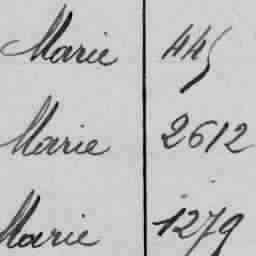 Marie 445
Marie 2612
Marie 1279